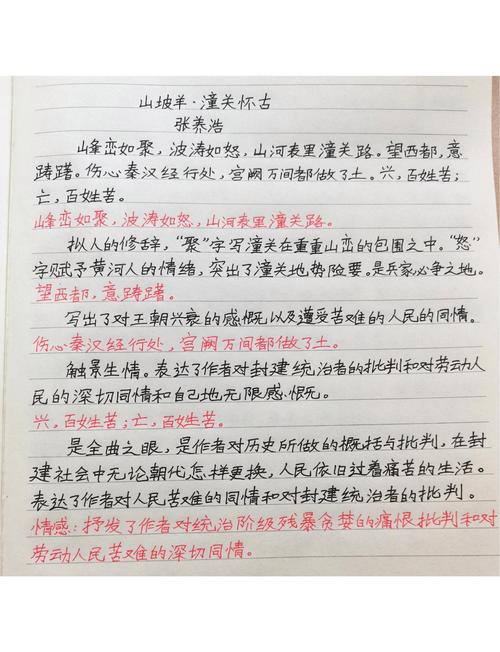 山坡羊·潼关怀古
张养浩
峰峦如聚，波涛如怒，山河表里潼关路。望西都，意
踌躇。伤心秦汉经行处，宫阙万间都做了土。兴，百姓苦；
亡，百姓苦。
峰峦如聚，波涛如怒，山河表里潼关路。
拟人的修辞，“聚”字写潼关在重重山峦的包围之中。“怒”
字赋予黄河人的情绪，突出了潼关地势险要。是兵家必争之地。
望西都，意踌躇。
写出了对王朝兴衰的感慨以及遭受苦难的人民的同情。
伤心秦汉经行处，宫阙万间都做了土。
触景生情。表达了作者对封建统治者的批判和对劳动人
民的深切同情和自己地无限感慨。
兴，百姓苦；亡，百姓苦。
是全曲之眼，是作者对历史所做的概括与批判，在封
建社会中无论朝代怎样更换，人民依旧过着痛苦的生活。
表达了作者对人民苦难的同情和对封建统治者的批判。
情感：抒发了作者对统治阶级残暴贪婪的痛恨批判和对
劳动人民苦难的深切同情。